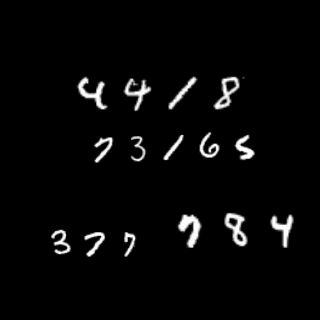 44/8
73/65
377 784